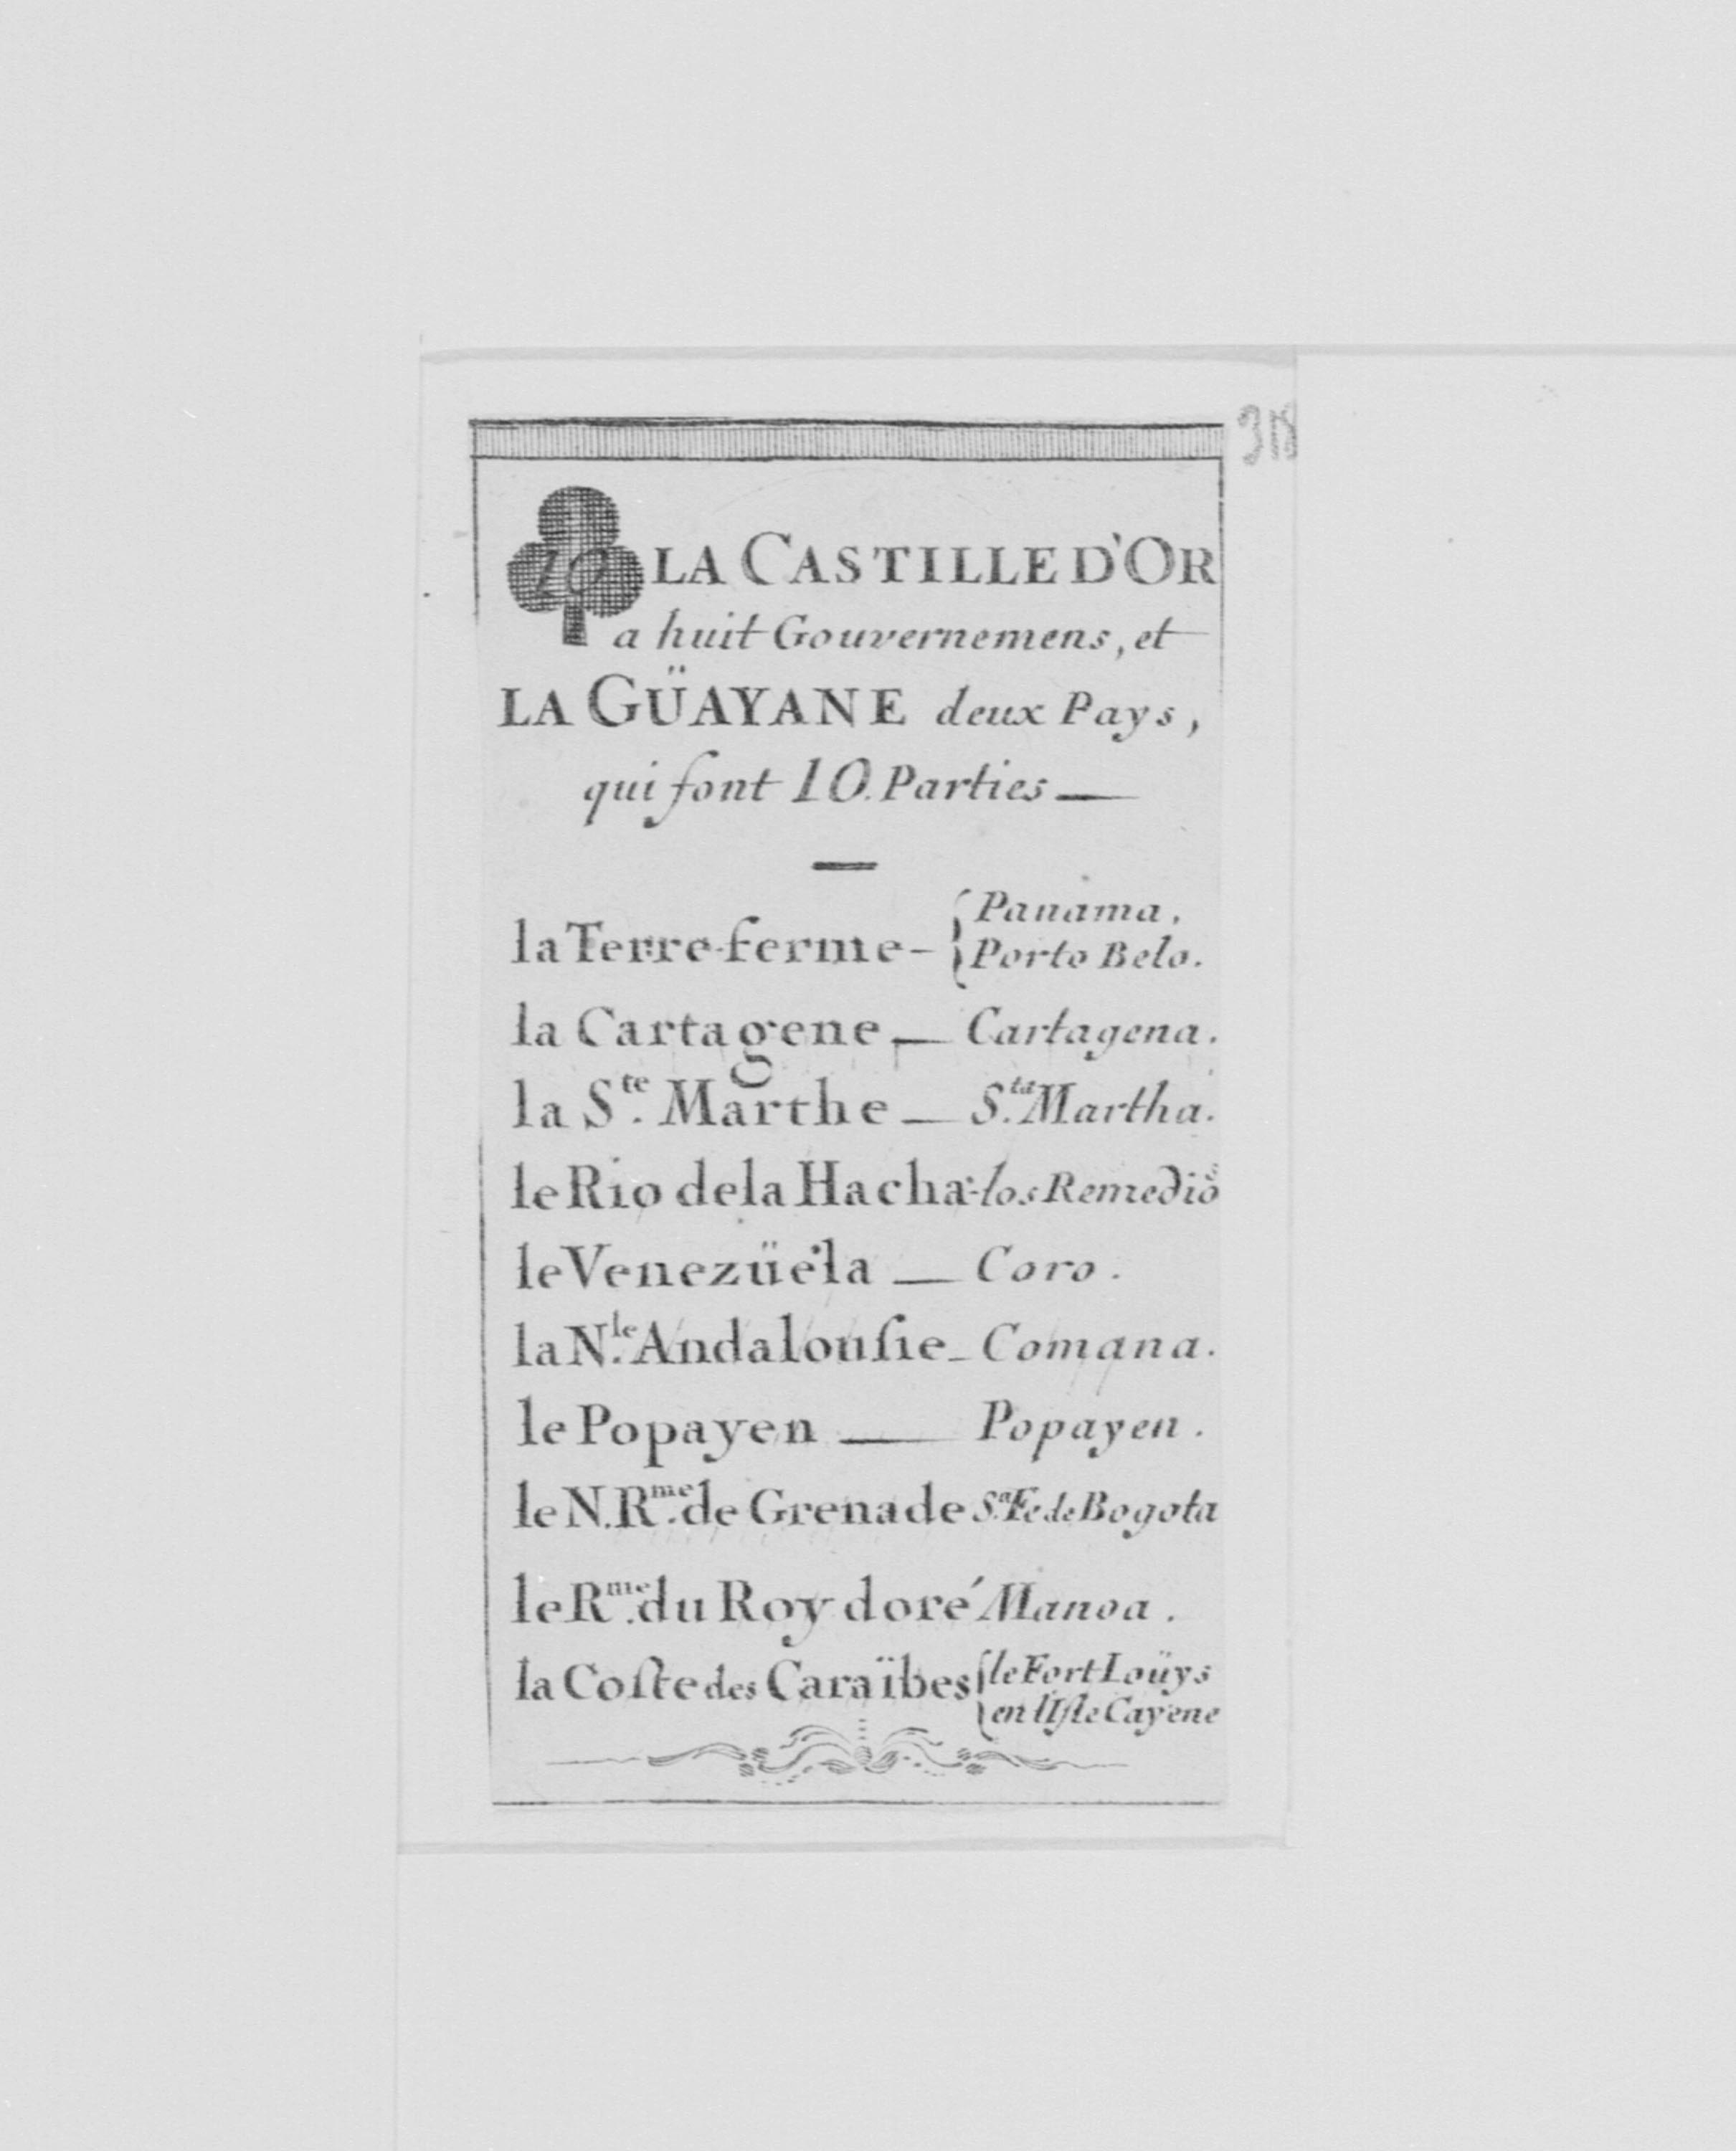 318
10 LA CASTILLE D'OR
a huit Gouvernemens, et
LA GÜAYANE deux Pays,
qui font 10. Parties —
la Terre-ferme - { Panama.
Porto Belo.
la Cartagene — Cartagena.
la S.te Marthe — S.ta Martha.
le Rio de la Hacha - los Remedios
le Venezüéla — Coro.
la N.le Andalouſie - Comana.
le Popayen — Popayen.
le N. R.me de Grenade S.ª Fe de Bogota
le R.me du Roy doré Manoa.
la Coſte des Caraïbes { le Fort Loüys
en l'Iſle Cayene